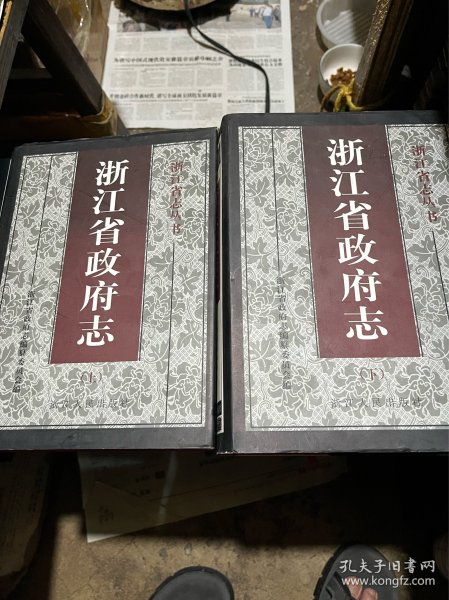 浙江省志丛书
浙江省政府志
（上）
浙江省政府志编纂委员会编
浙江人民出版社
浙江省志丛书
浙江省政府志
（下）
浙江省政府志编纂委员会编
浙江人民出版社
孔夫子旧书网
www.kongfz.com